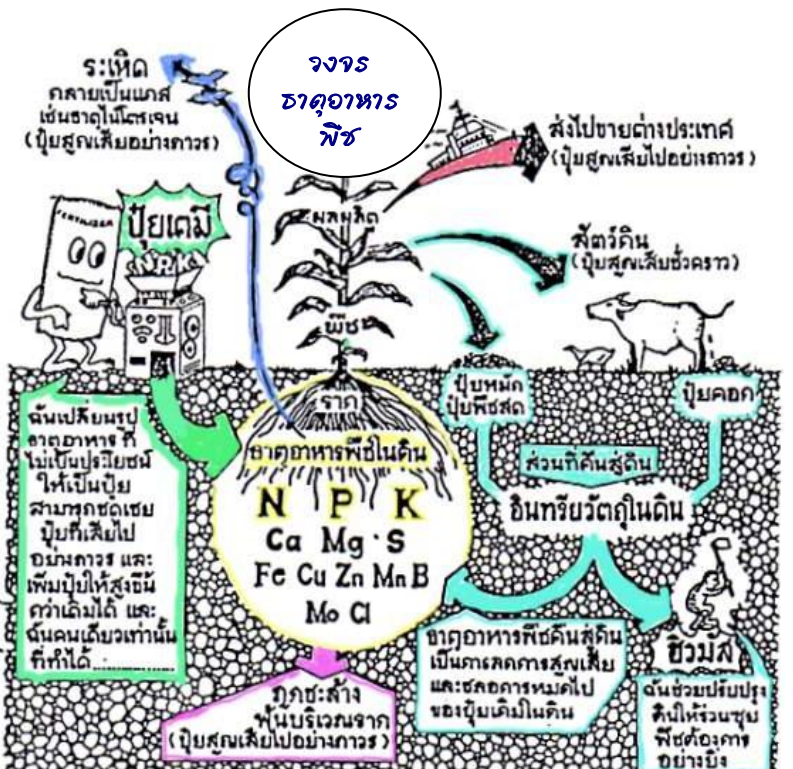 วงจร
ธาตุอาหาร
พืช
ระเหิด
กลายเป็นแกส
เช่นธาตุไนโตรเจน
(ปุ๋ยสูญเสียอย่างถาวร)
ส่งไปขายต่างประเทศ
(ปุ๋ยสูญเสียไปอย่างถาวร)
FERTILIZER
ปุ๋ยเคมี
NPK
ผลผลิต
สัตว์กิน
(ปุ๋ยสูญเสียชั่วคราว)
พืช
ราก
ปุ๋ยหมัก
ปุ๋ยพืชสด
ปุ๋ยคอก
ฉันเปลี่ยนรูป
ธาตุอาหาร ที่
ไม่เป็นประโยชน์
ให้เป็นปุ๋ย
สามารถชดเชย
ปุ๋ยที่เสียไป
อย่างถาวร และ
เพิ่มปุ๋ยให้สูงขึ้น
กว่าเดิมได้ และ
ฉันคนเดียวเท่านั้น
ที่ทำได้............
ธาตุอาหารพืชในดิน
N P K
Ca Mg S
Fe Cu Zn Mn B
Mo Cl
ส่วนที่คืนสู่ดิน
อินทรียวัตถุในดิน
ธาตุอาหารพืชคืนสู่ดิน
เป็นการลดการสูญเสีย
และชลอการหมดไป
ของปุ๋ยเดิมในดิน
ฮิวมัส
ฉันช่วยปรับปรุง
ดินให้ร่วนซุย
พืชต้องการ
อย่างยิ่ง
ถูกชะล้าง
พ้นบริเวณราก
(ปุ๋ยสูญเสียไปอย่างถาวร)